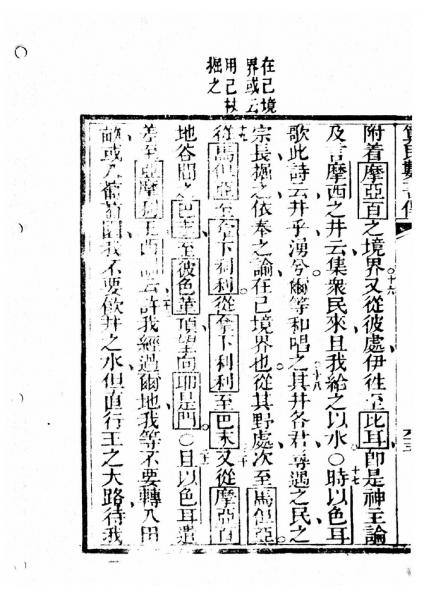 在己境
界或云
用己杖
掘之
附着摩亞百之境界又從彼處伊往至比耳卽是神主論
及言摩西之井云集衆民來且我給之以水○時以色耳
歌此詩云井乎湧兮爾等和唱之其井各君尋遇之民之
宗長掘之依奉之諭在己境界也從其野處次至馬但亞
從馬但亞至拿下利利從拿下利利至巴末又從摩亞百
地谷間之巴末至彼色革頂望向耶是門○且以色耳遣
差至亞摩利王西 云許我經過爾地我等不要轉入田
或入葡萄園我不要飲井之水但直行王之大路待我